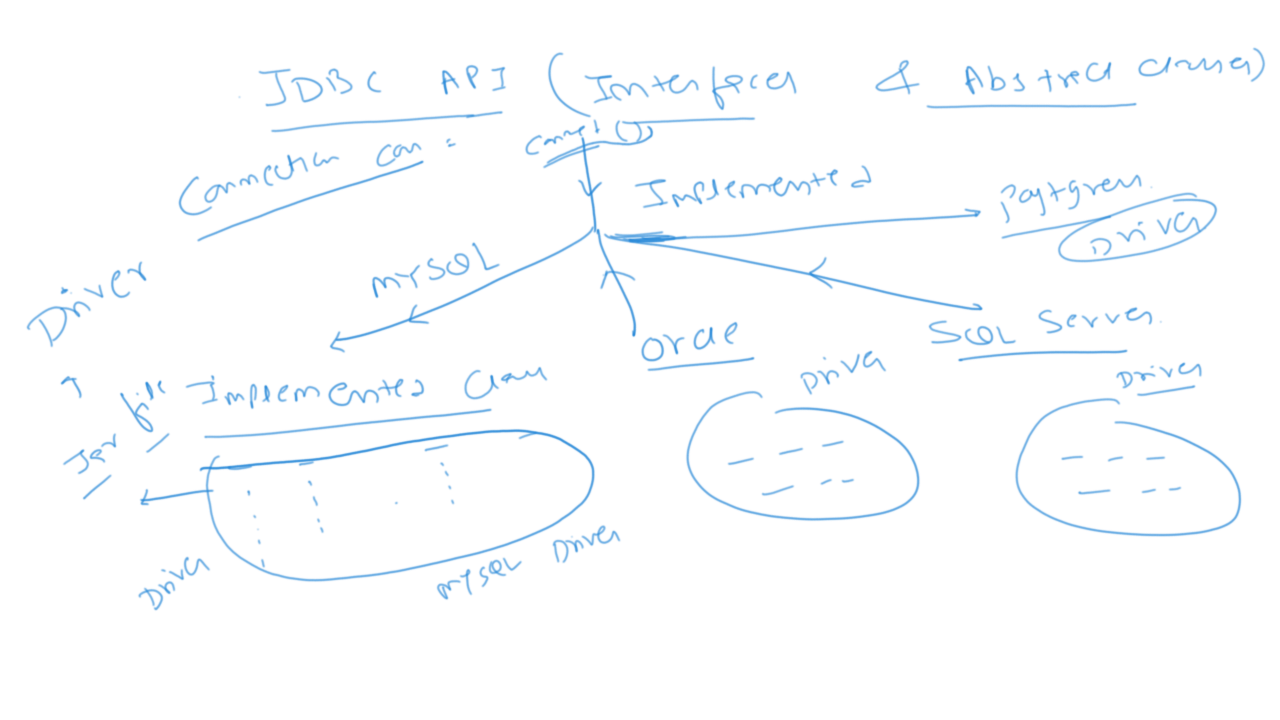 JDBC API (Interfaces & Abstract classes)
Connection con =
connect()
Implemented
Postgres
Driver
MYSQL
Driver
SQL Server
Oracle
Driver
Driver
Jar file
Implemented Class
Driver
MYSQL Driver